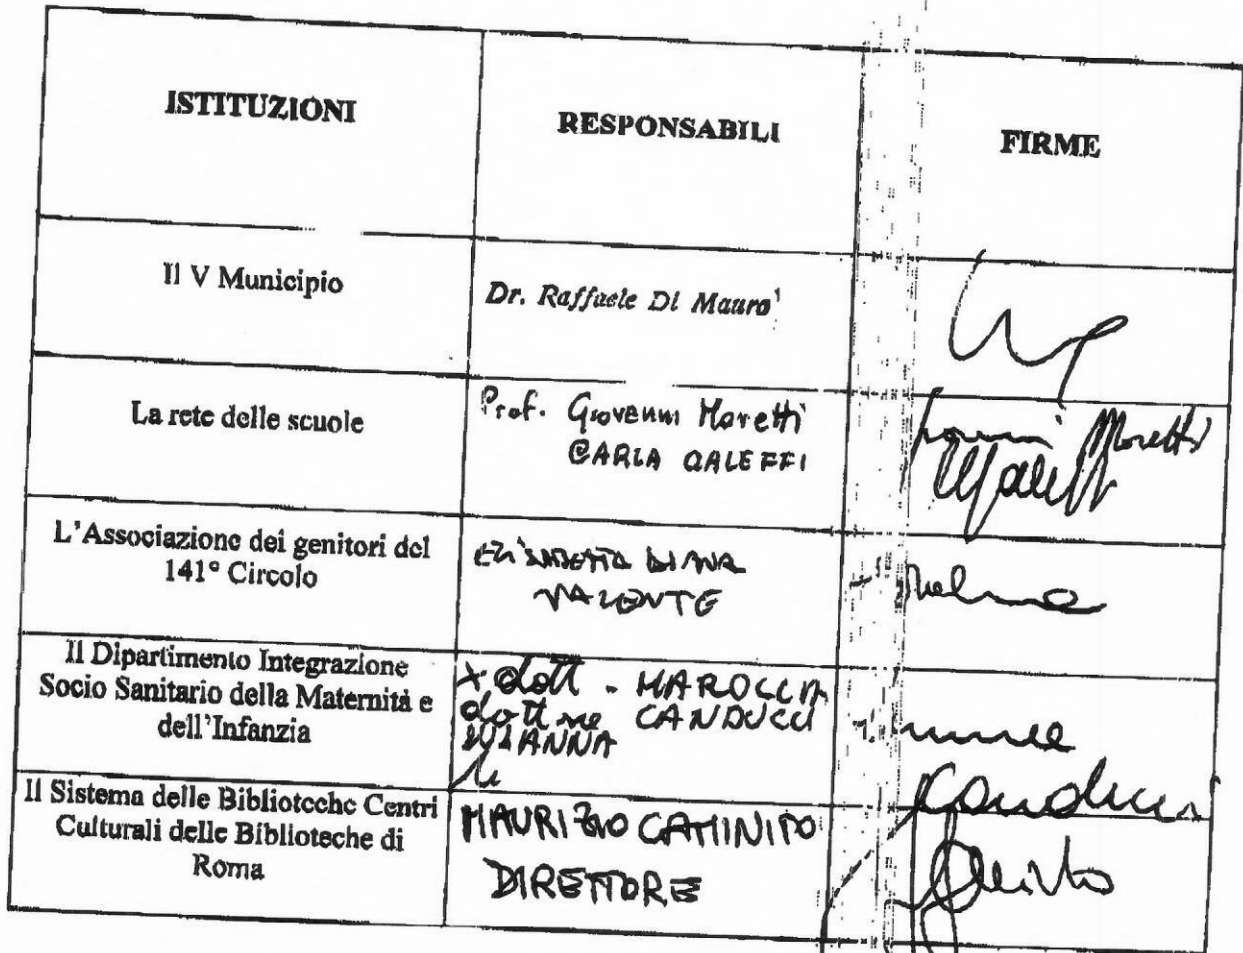 ISTITUZIONI
RESPONSABILI
FIRME
Il V Municipio
Dr. Raffaele Di Mauro
La rete delle scuole
Prof. Giovanni Moretti
CARLA GALEFFI
Moretti
L'Associazione dei genitori del
141° Circolo
ELISABETTA DIANA
VALENTE
Il Dipartimento Integrazione
Socio Sanitario della Maternità e
dell'Infanzia
x dott. MAROCCIA
CANDUCCI
Il Sistema delle Biblioteche Centri
Culturali delle Biblioteche di
Roma
MAURIZIO CAMINITO
DIRETTORE